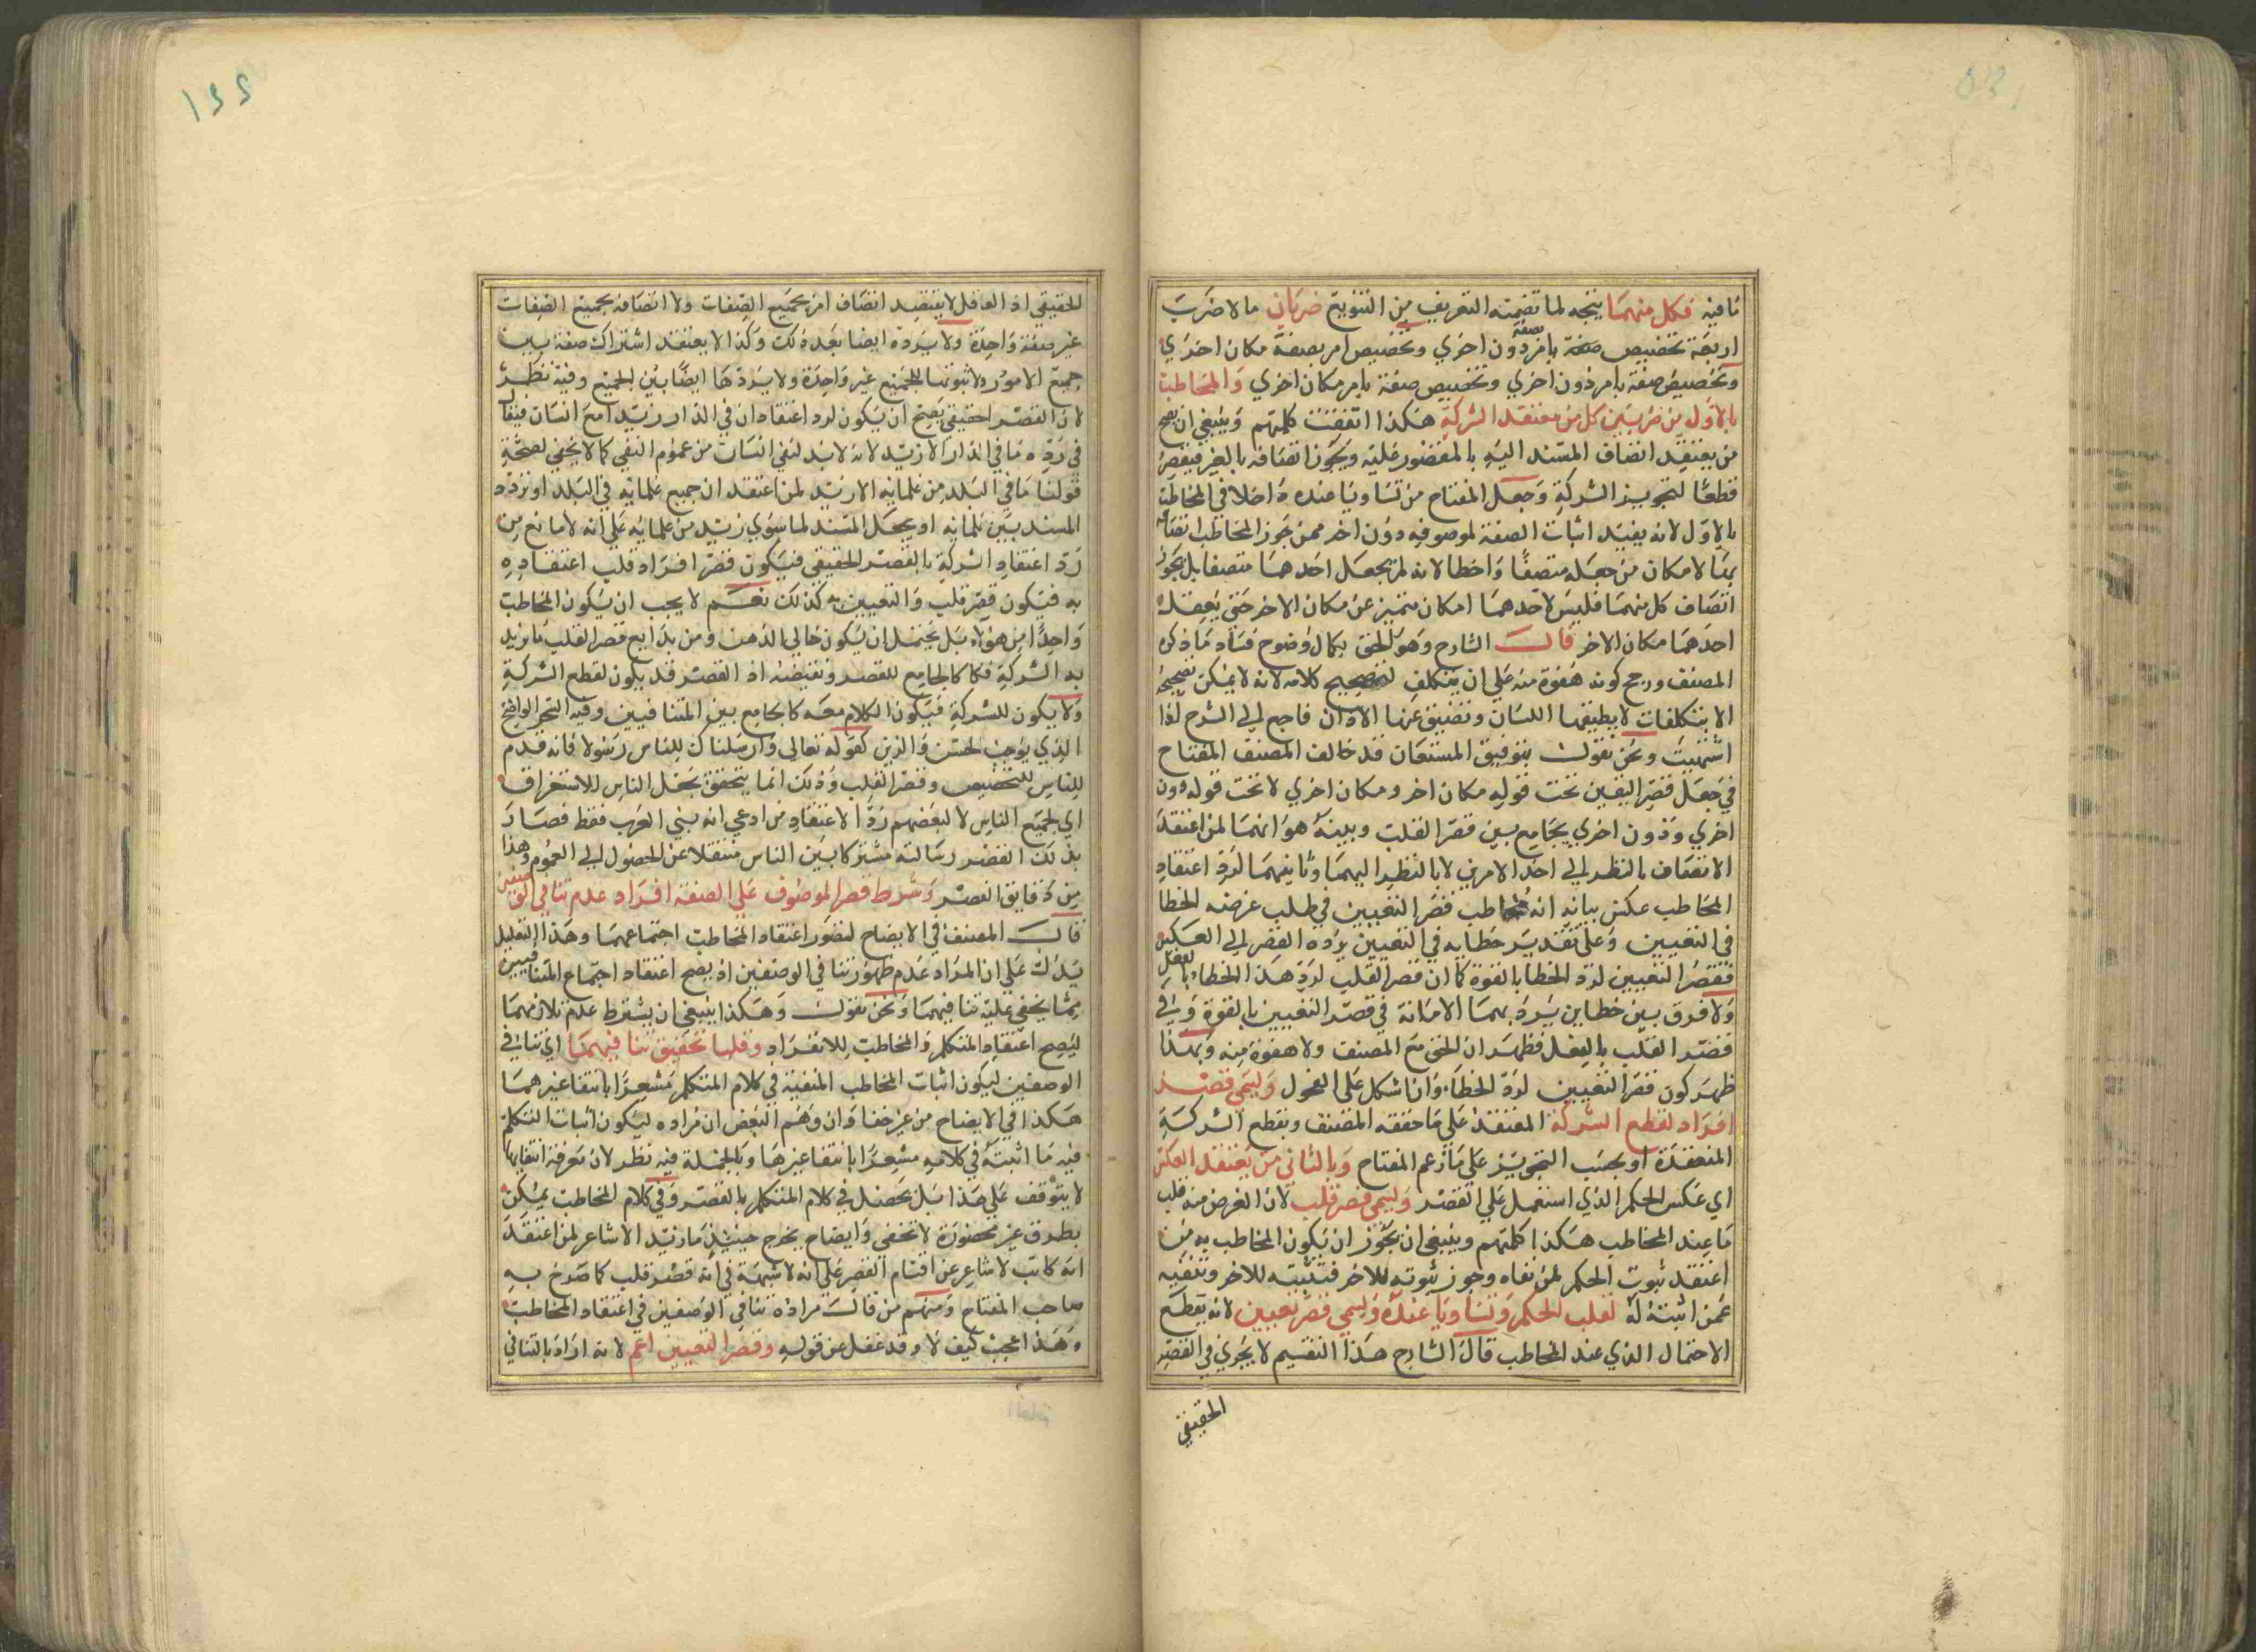 نافيه فكل منهما يتجه لما تضمنه التعريف من التنويع ضربان ما لا ضرب
اربعة تخصيص صفة بامر دون اخرى وتخصيص امر بصفة مكان اخرى
بصفة
وتخصيص صفة بامر دون اخرى وتخصيص صفة بامر مكان اخرى والمخاطب
بالاول من ضربين كل من معتقد الشركة هكذا اتفقت كلمتهم وينبغي ان يصح
من يعتقد اتصاف المسند اليه بالمقصور عليه ويجوز اتصافه بالغير فيقصر
قطعا لتجويز الشركة وجعل المفتاح من تساويا عنده داخلا في المخاطب
بالاول لانه يفيد اثبات الصفة لموصوفه دون اخر ممن جوز المخاطب اتصافه
بها لا مكان من جعله متصفا واخطا لانه لم يجعل احدهما متصفا بل جوز
اتصاف كل منهما فليس لاحدهما امكان متميز عن مكان الاخر حتى يعتقد
احدهما مكان الاخر قال الشارح وهو الحق بكمال وضوح فساد ما ذكره
المصنف ورجح كونه هفوة منه على ان يتكلف لتصحيح كلامه لانه لا يمكن تصحيحه
الا بتكلفات لا يطيقها اللسان وتضيق عنها الاذان فارجع الى الشرح لذا
اشتهيت ونحن نقول بتوفيق المستعان قد خالف المصنف المفتاح
في جعل قصر التعيين تحت قوله مكان اخر ومكان اخرى لا تحت قوله دون
اخرى ودون اخرى بجامع بين قصر القلب وبينه هو انهما لمن اعتقد
الاتصاف بالنظر الى احد الامرين لا بالنظر اليهما وثانيهما لرد اعتقاد
المخاطب عكس بيانه انه خاطب قصر التعيين في طلب عرضه الخطا
في التعيين وعلى تقدير خطايه في التعيين يرده القصر الى العكس
فقصر التعيين لرد الخطا بالقوة كما ان قصر القلب لرد هذا الخطا بالفعل
ولا فرق بين خطاين يرد بهما الا انه في قصر التعيين بالقوة وفي
قصر القلب بالفعل فظهر ان الحق مع المصنف ولا هفوة منه وبهذا
ظهر كون قصر التعيين لرد الخطا وان اشكل على الفحول وليسمى قصر
افراد لقطع الشركة المعتقد على ما حققه المصنف وبقطع الشركة
المنعقدة او بحسب التجويز على ما زعم المفتاح وبالثاني من يعتقد العكس
اي عكس الحكم الذي استعمل على القصر وليسمى قصر قلب لان الغرض منه قلب
ما عند المخاطب هكذا كلمتهم وينبغي ان يجوز ان يكون المخاطب به من
اعتقد ثبوت الحكم لمن نفاه وجوز ثبوته للاخر فتثبته للاخر وتنفيه
عمن اثبته له لقلب الحكم وتساويا عنده وليسمى قصر تعيين لانه يقطع
الاحتمال الذي عند المخاطب قال الشارح هذا التقسيم لا يجري في القصر
الحقيقي
الحقيقي اذ العاقل لا يعتقد اتصاف امر بجميع الصفات ولا اتصافه بجميع الصفات
غير صفة واحدة ولا يردده ايضا بعد ذلك وكذا لا يعتقد اشتراك صفة بين
جميع الامور ولا ثبوتها للجميع غير واحدة ولا يرددها ايضا بين الجميع وفيه نظر
لان القصر الحقيقي يصح ان يكون لرد اعتقاد ان في الدار زيدا مع انسان فيقال
في رده ما في الدار الا زيد لانه لا بد لنفي انسان من عموم النفي كما لا يخفى لصحة
قولنا ما في البلد من علمايه الا زيد لمن اعتقد ان جميع علمايه في البلد او تردد
المسند بين علمايه او يجعل المسند لما سوى زيد من علمايه على انه لا مانع من
رد اعتقاد الشركة بالقصر الحقيقي فيكون قصر افراد قلب اعتقاده
به فيكون قصر قلب والتعيين به كذلك نعم لا يجب ان يكون المخاطب
واحدا من هؤلاء بل يحتمل ان يكون خالي الذهن ومن بدايع قصر القلب ما يزيد
به الشركة فكا كالجامع للقصر ونقيضه اذ القصر قد يكون لقطع الشركة
ولا يكون للشركة فيكون الكلام معه كالجامع بين المتنافيين وفيه التحر الواضح
الذي يوجب الحسن والزين كقوله تعالى وارسلناك للناس رسولا فانه قدم
للناس للتخصيص وقصر القلب وذلك انما يتحقق بجعل الناس للاستغراق
اي لجميع الناس لا لبعضهم ردا لاعتقاد من ادعى انه نبي العرب فقط فصار
بذلك القصر رسالته مشتركا بين الناس منتقلا عن الخصوص الى العموم وهذا
من دقايق القصر وشرط قصر الموصوف على الصفة افراد عدم تنافي الوصفين
قال المصنف في الايضاح لتصور اعتقاد المخاطب اجتماعهما وهذا التعليل
يدل على ان المراد عدم ظهور تنافي الوصفين اذ يصح اعتقاد اجتماع المتنافيين
مما يخفى عليه تنافيهما ونحن نقول وهكذا ينبغي ان يشترط عدم تلازمهما
ليصح اعتقاد المتكلم والمخاطب للانفراد وقلبا تحقيق تنافيهما اي تنافي
الوصفين ليكون اثبات المخاطب المنفية في كلام المتكلم مشعرا بانتفا غيرهما
هكذا في الايضاح من غير خفا وان وهم البعض ان مراده ليكون اثبات المتكلم
فيه ما اثبته في كلامه مشعرا بانتفا غيرها وبالجملة فيه نظر لان معرفة انتفايها
لا يتوقف على هذا بل يحصل في كلام المتكلم بالقصر وفي كلام المخاطب يمكن
بطرق غير محصورة لا تخفى وايضاح يخرج حينئذ ما زيد الا شاعر لمن اعتقد
انه كاتب لا شاعر عن اقسام القصر على انه لا شبهة في انه قصر قلب كما صرح به
صاحب المفتاح ومنهم من قال مراده تنافي الوصفين في اعتقاد المخاطب
وهذا عجب كيف لا وقد غفل عن قوله وقصر التعيين اعم لانه اراد بالتنافي